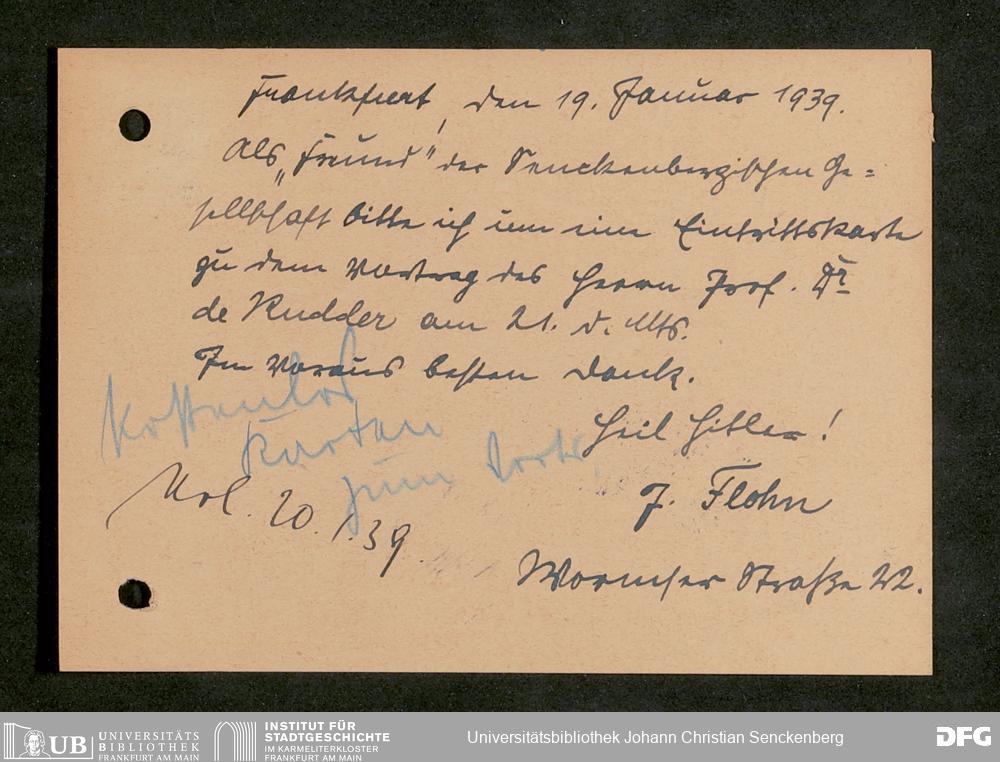 Frankfurt, den 19. Januar 1939.
Als „Freund" der Senckenbergischen Ge=
sellschaft bitte ich um eine Eintrittskarte
zu dem Vortrag des Herrn Prof. Dr.
de Rudder am 21. d. Mts.
Im Voraus besten Dank.
Heil Hitler!
J. Flohn
Wormser Straße 22.
Kostenlos
Karten
zum Vortr.
20.1.39
UB UNIVERSITÄTS
BIBLIOTHEK
FRANKFURT AM MAIN
INSTITUT FÜR
STADTGESCHICHTE
IM KARMELITERKLOSTER
FRANKFURT AM MAIN
Universitätsbibliothek Johann Christian Senckenberg
DFG